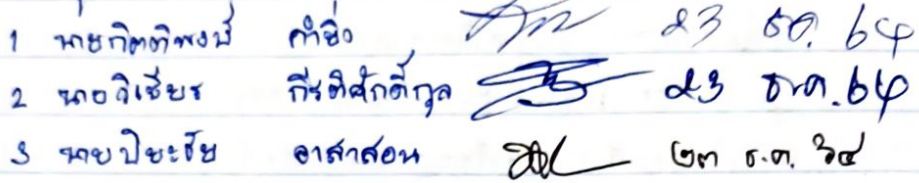 1 นายกิตติพงษ์ คำยิ่ง 23 ธค. 64
2 นายวิเชียร กีรติศักดิ์กุล 23 ธ.ค. 64
3 นายปิยะชัย อาสาสอน ๒๓ ธ.ค. ๖๔